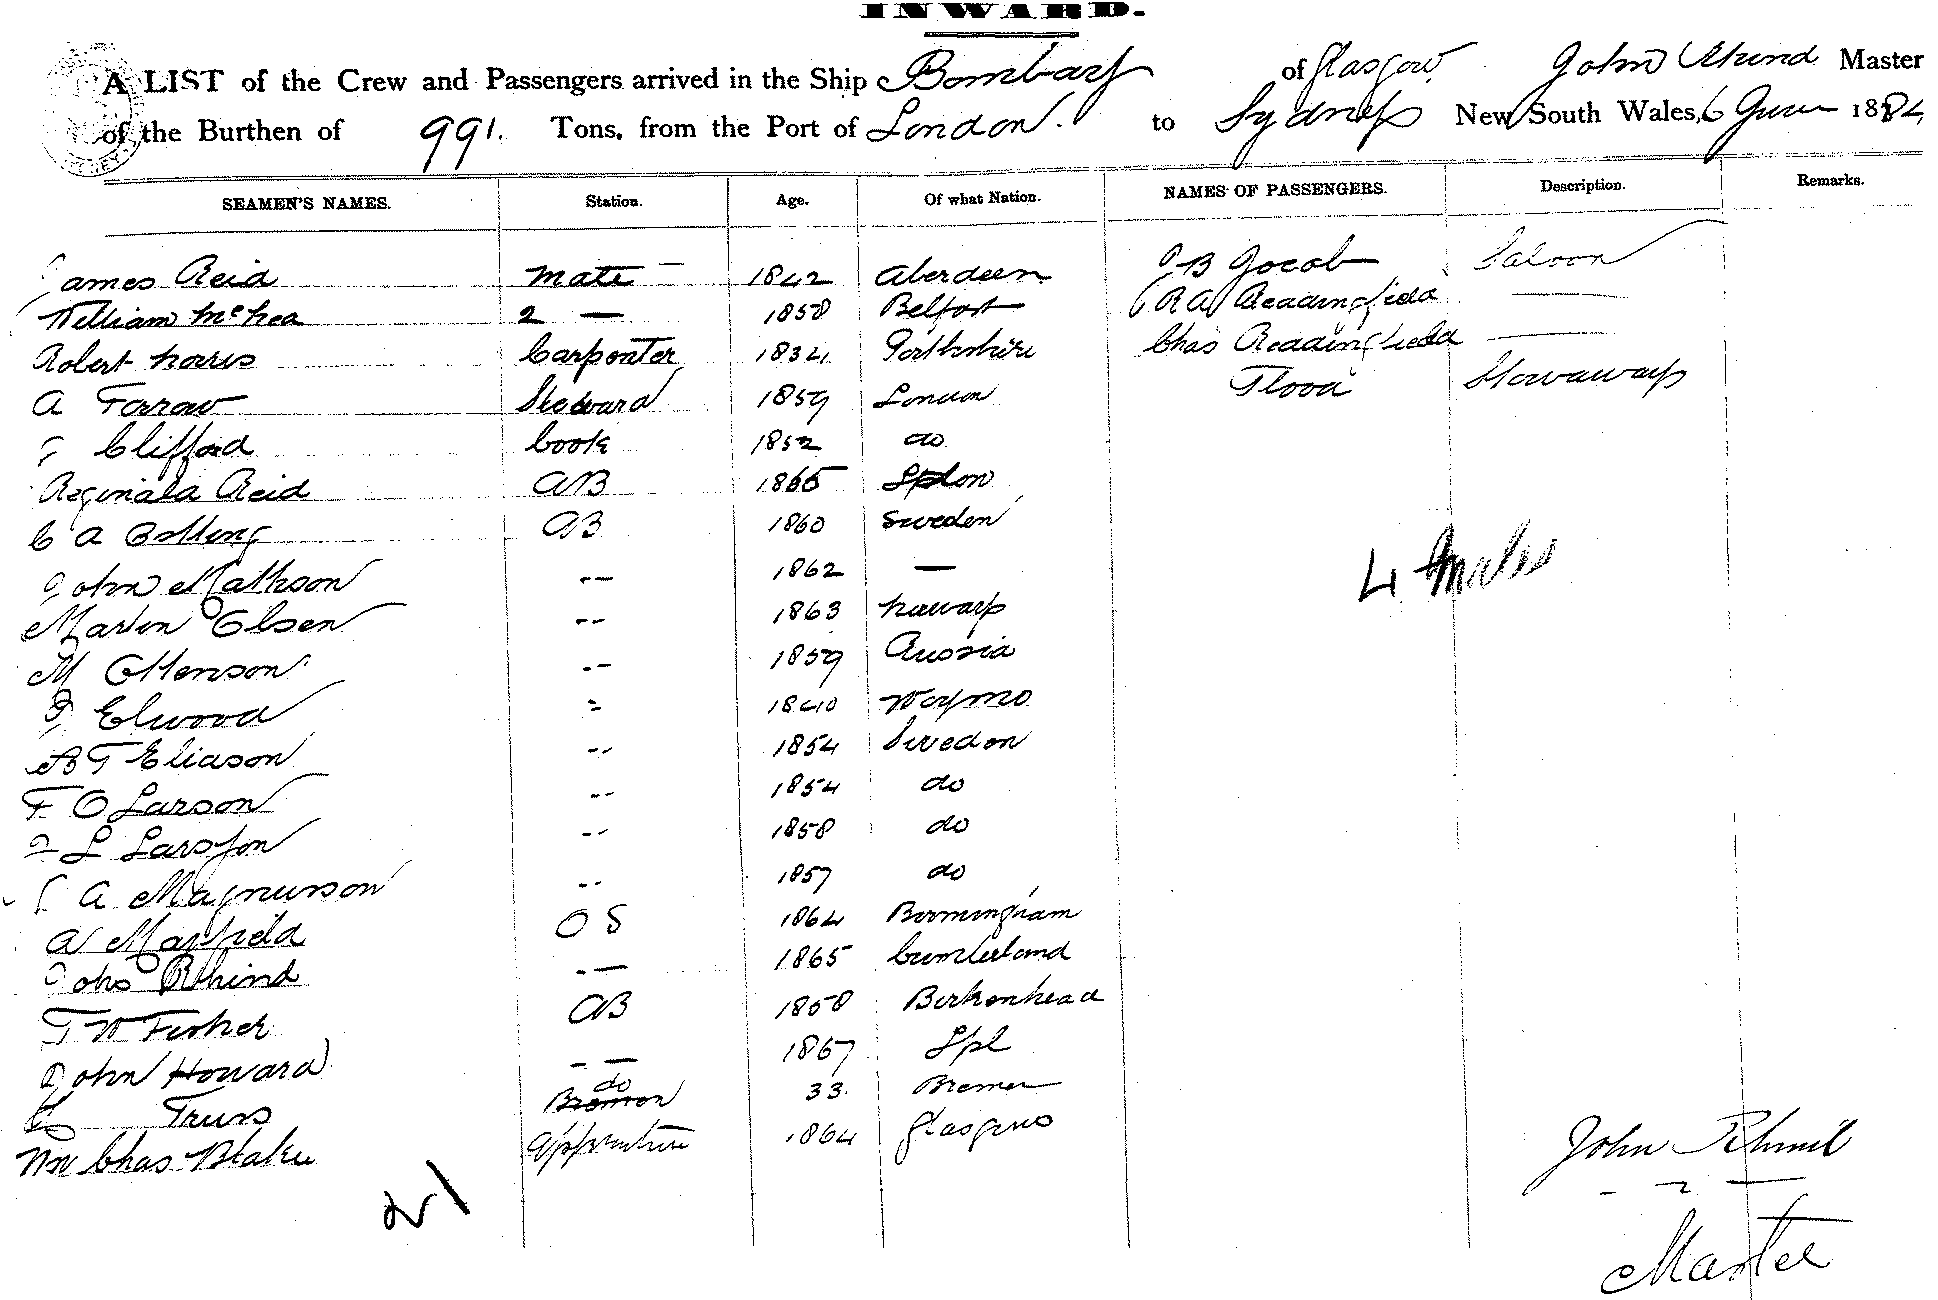 INWARD.
A LIST of the Crew and Passengers arrived in the Ship Bombay of Glasgow John Rhind Master
of the Burthen of 991. Tons, from the Port of London. to Sydney New South Wales, 6 June 1884
SEAMEN'S NAMES. Station. Age. Of what Nation. NAMES OF PASSENGERS. Description. Remarks.
James Reid Mate 1842 Aberdeen J B Jacob Saloon
William McKea 2 — 1858 Belfast R A Readingfield —
Robert Norris Carpenter 1834 Perthshire Chas Readingfield —
A Farrow Steward 1859 London Flood Stowaway
J Clifford Cook 1852 do
Reginald Reid AB 1865 London
C A Bolling AB 1860 Sweden
John Mathson -- 1862 —
Martin Olsen -- 1863 Norway
M Ottenson -- 1859 Russia
J Elwood -- 1840 Weymo
A T Eliason -- 1854 Sweden
F O Larson -- 1854 do
J L Larsson -- 1858 do
J A Magnusson -- 1857 do
A Mayfield O S 1864 Birmingham
John Rhind -- 1865 Cumberland
T W Fisher AB 1858 Birkenhead
John Howard -- 1867 Lpl
Truss do 33 Bremen
Wm Chas Blake Apprentice 1864 Glasgow
4 Males
21
John Rhind
Master